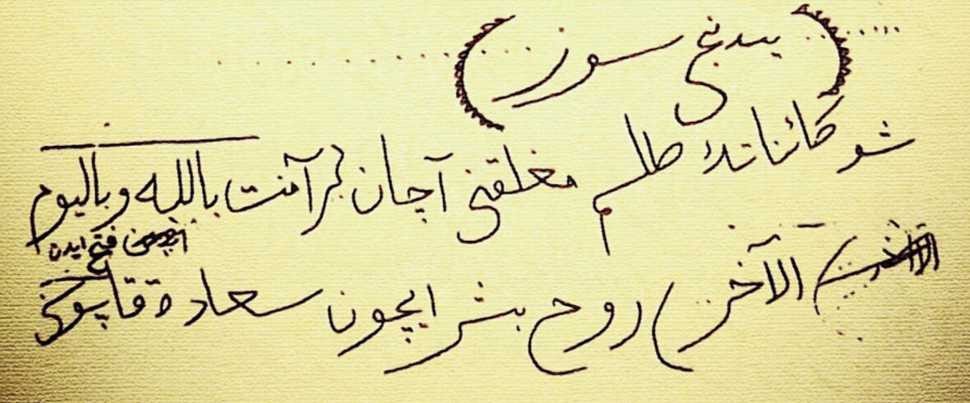 (یدنجی سوز)
شو كائناتڭ طلسم مغلقنی آچان آمنت بالله وباليوم
الآخر) روح بشر ایچون سعادة قاپوسنی
فتح ایدن